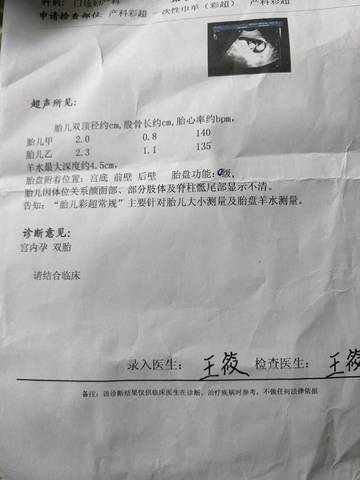 科别： 门诊妇产科
申请检查部位：产科彩超 一次性巾单（彩超） 产科彩超
超声所见：
胎儿双顶径约cm,股骨长约cm,胎心率约bpm,
胎儿甲 2.0 0.8 140
胎儿乙 2.3 1.1 135
羊水最大深度约4.5cm,
胎盘附着位置：宫底 前壁 后壁 胎盘功能：0级,
胎儿因体位关系颜面部、部分肢体及脊柱骶尾部显示不清。
告知：“胎儿彩超常规”主要针对胎儿大小测量及胎盘羊水测量。
诊断意见：
宫内孕 双胎
请结合临床
录入医生： 王筱 检查医生： 王筱
备注：该诊断结果仅供临床医生在诊断，治疗疾病时参考，不做任何法律依据